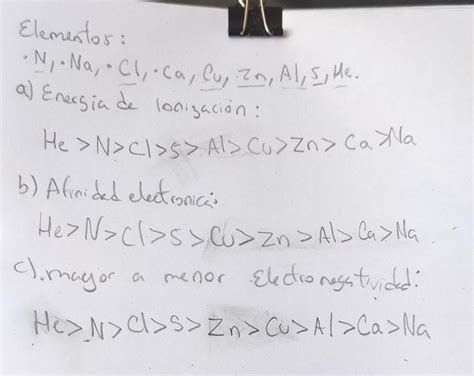 Elementos:
· N, · Na, · Cl, · Ca, Cu, Zn, Al, S, He.
a) Energía de Ionización:
He > N > Cl > S > Al > Cu > Zn > Ca > Na
b) Afinidad electronica:
He > N > Cl > S > Cu > Zn > Al > Ca > Na
c). mayor a menor Electronegatividad:
He > N > Cl > S > Zn > Cu > Al > Ca > Na